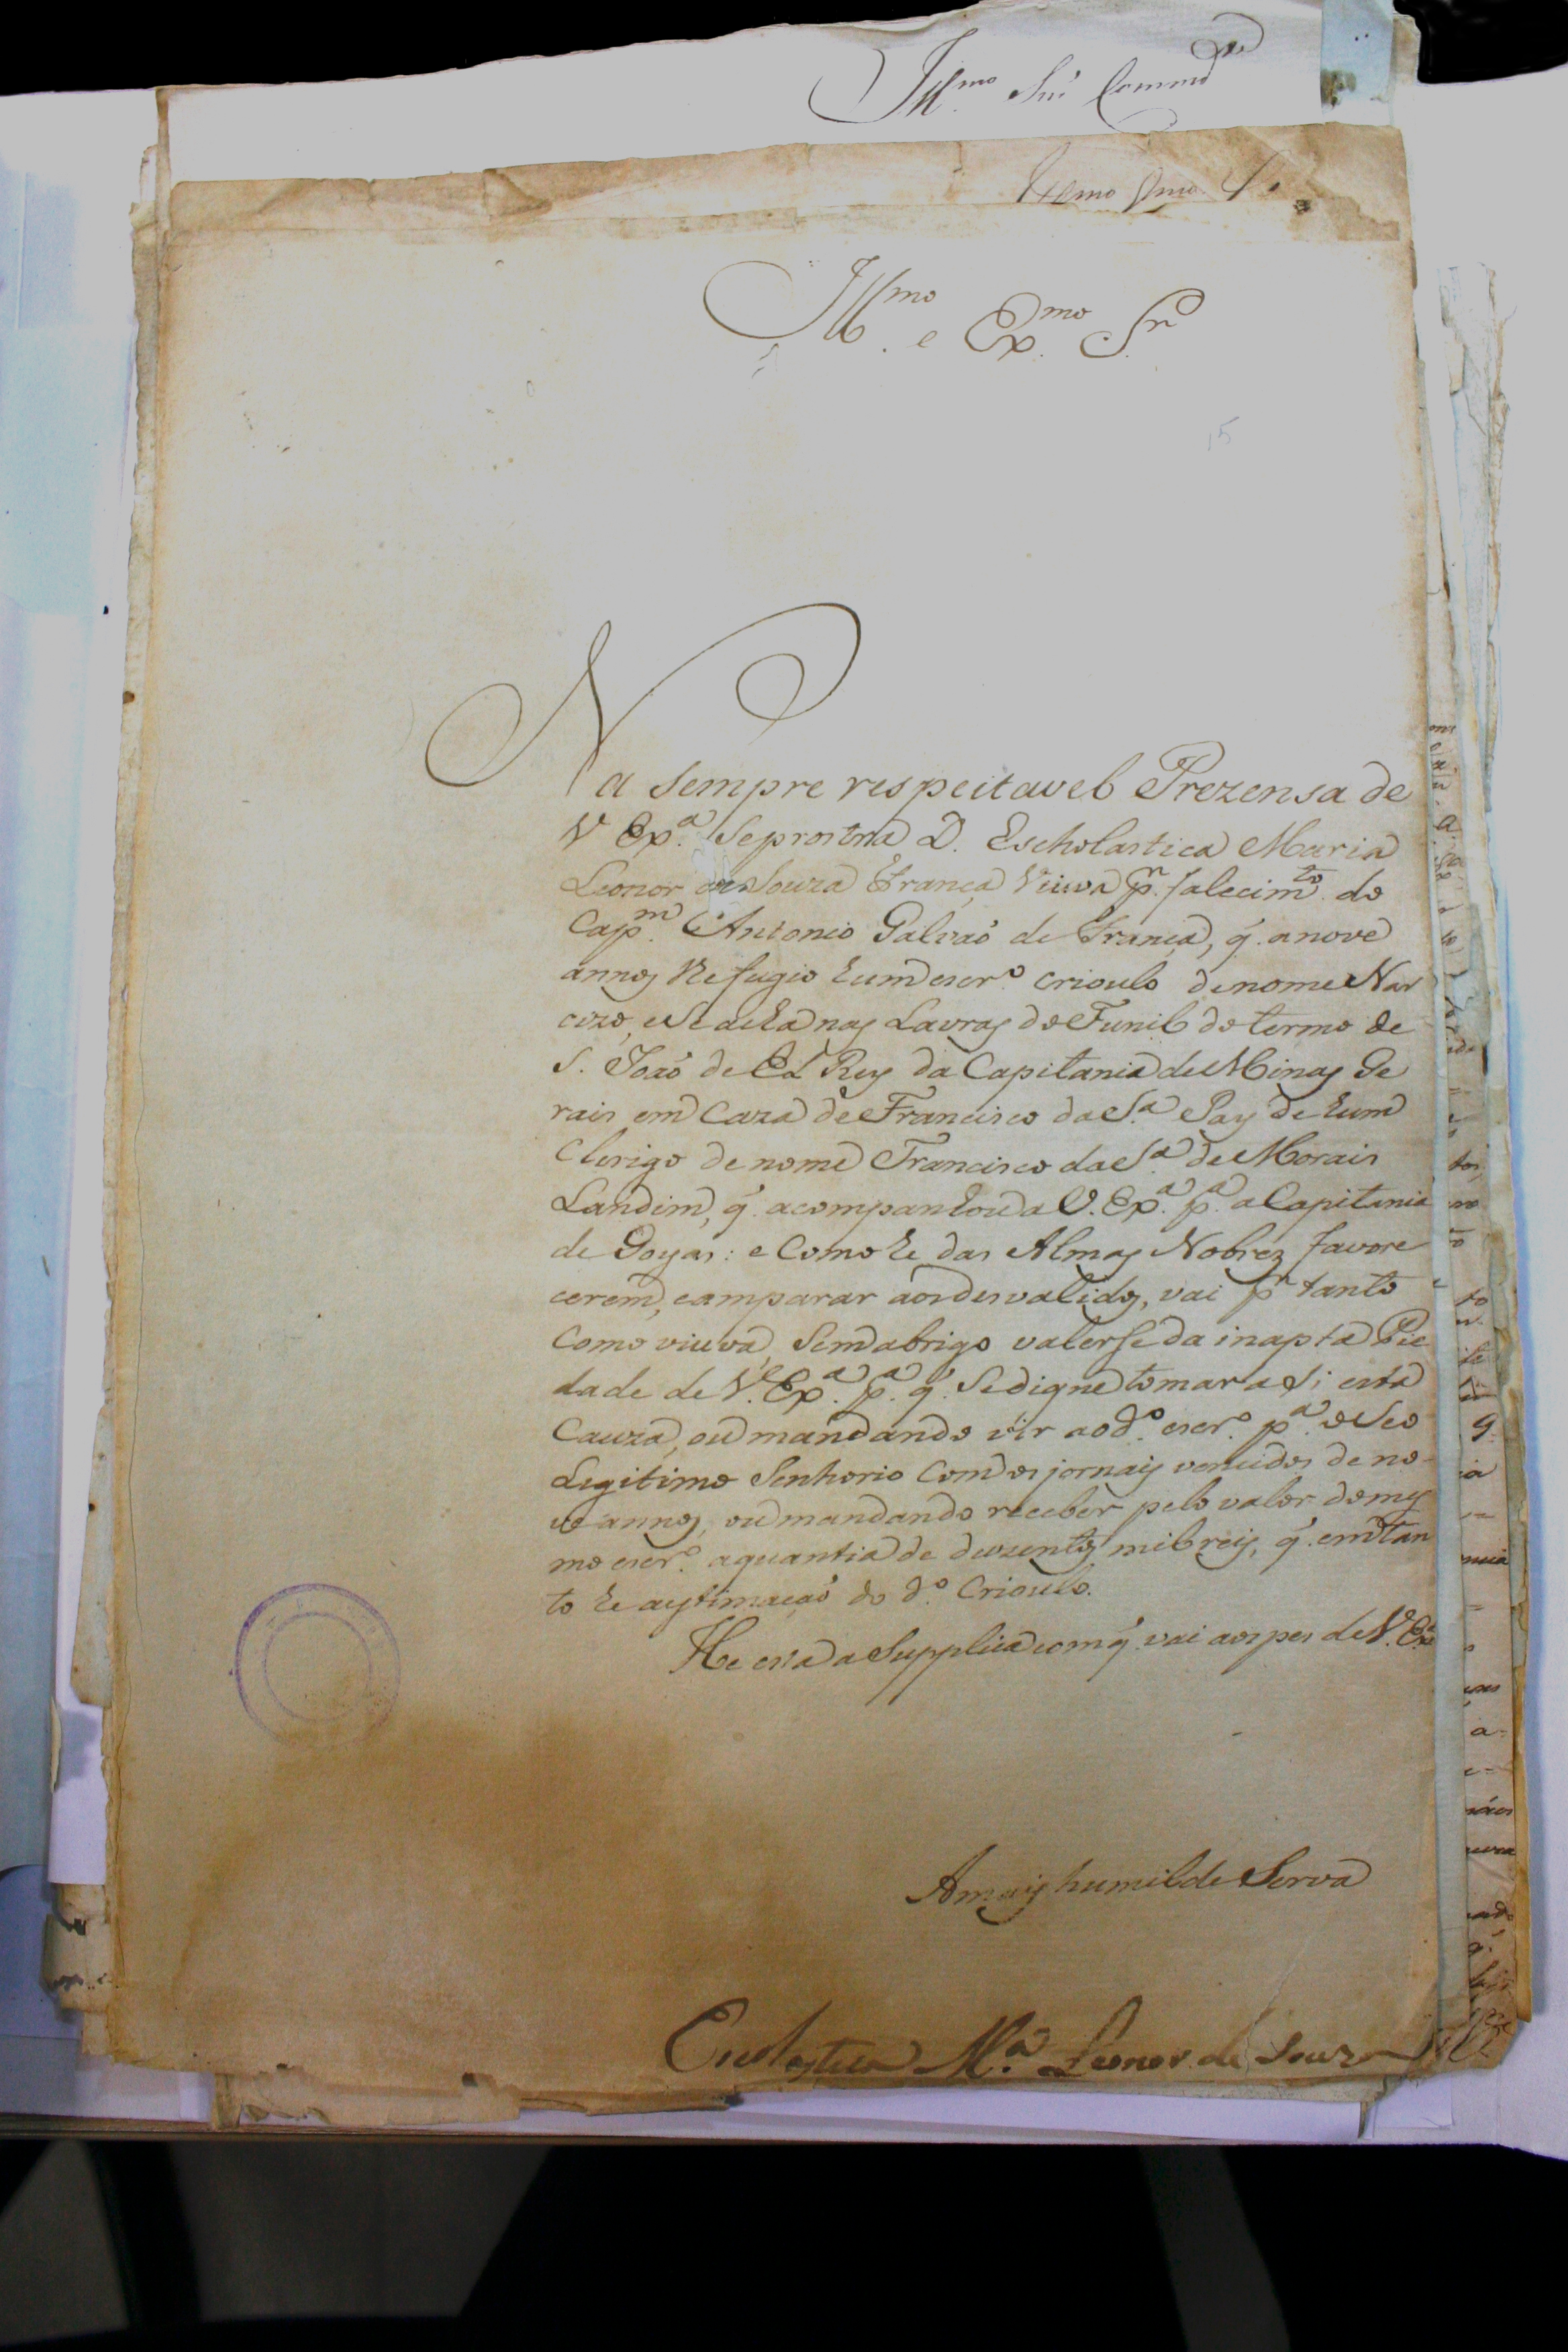 Ill.mo Snr Commd
Exmo Snro
Ill.mo e Ex.mo Sr
15
Na sempre respeitavel Prezensa de
V Ex.a Seprostra D. Escholastica Maria
Leonor de Souza França Viuva p.r falecim.to do
Cap.m Antonio Galvaõ de França, q̃. anove
annos Refugio hum escr.o crioulo denome Nar
cizo, ese acha nas Lavras do Funil do termo de
S. Joaõ de El Rey da Capitania de Minas Ge
rais em Caza de Francisco da S.a Pay de hum
Clerigo denome Francisco da S.a de Morais
Landim, q̃. acompanhou a V. Ex.a p.a a Capitania
de Goyas: e Como he das Almas Nobrez favore
cerem, eamparar aos desvalidos, vai p.r tanto
Como viuva, Sem abrigo valerse da inapta Pie
dade de V. Ex.a p.a q̃. Se digne tomar a Si esta
Cauza, ou mandando vir aod.o escr.o p.a o Seo
Legitimo Senhorio Com os jornais vencidos de no-
ve annos, ou mandando receber pelo valor do mes
mo escr.o aquantia de duzentos mil reis, q̃. em tan
to he aestimaçaõ do d.o Crioulo.
He esta a Supplica com q̃. vai aos pes de V. Ex.a
Amais humilde Serva
Escolastica M.a Leonor de Souza